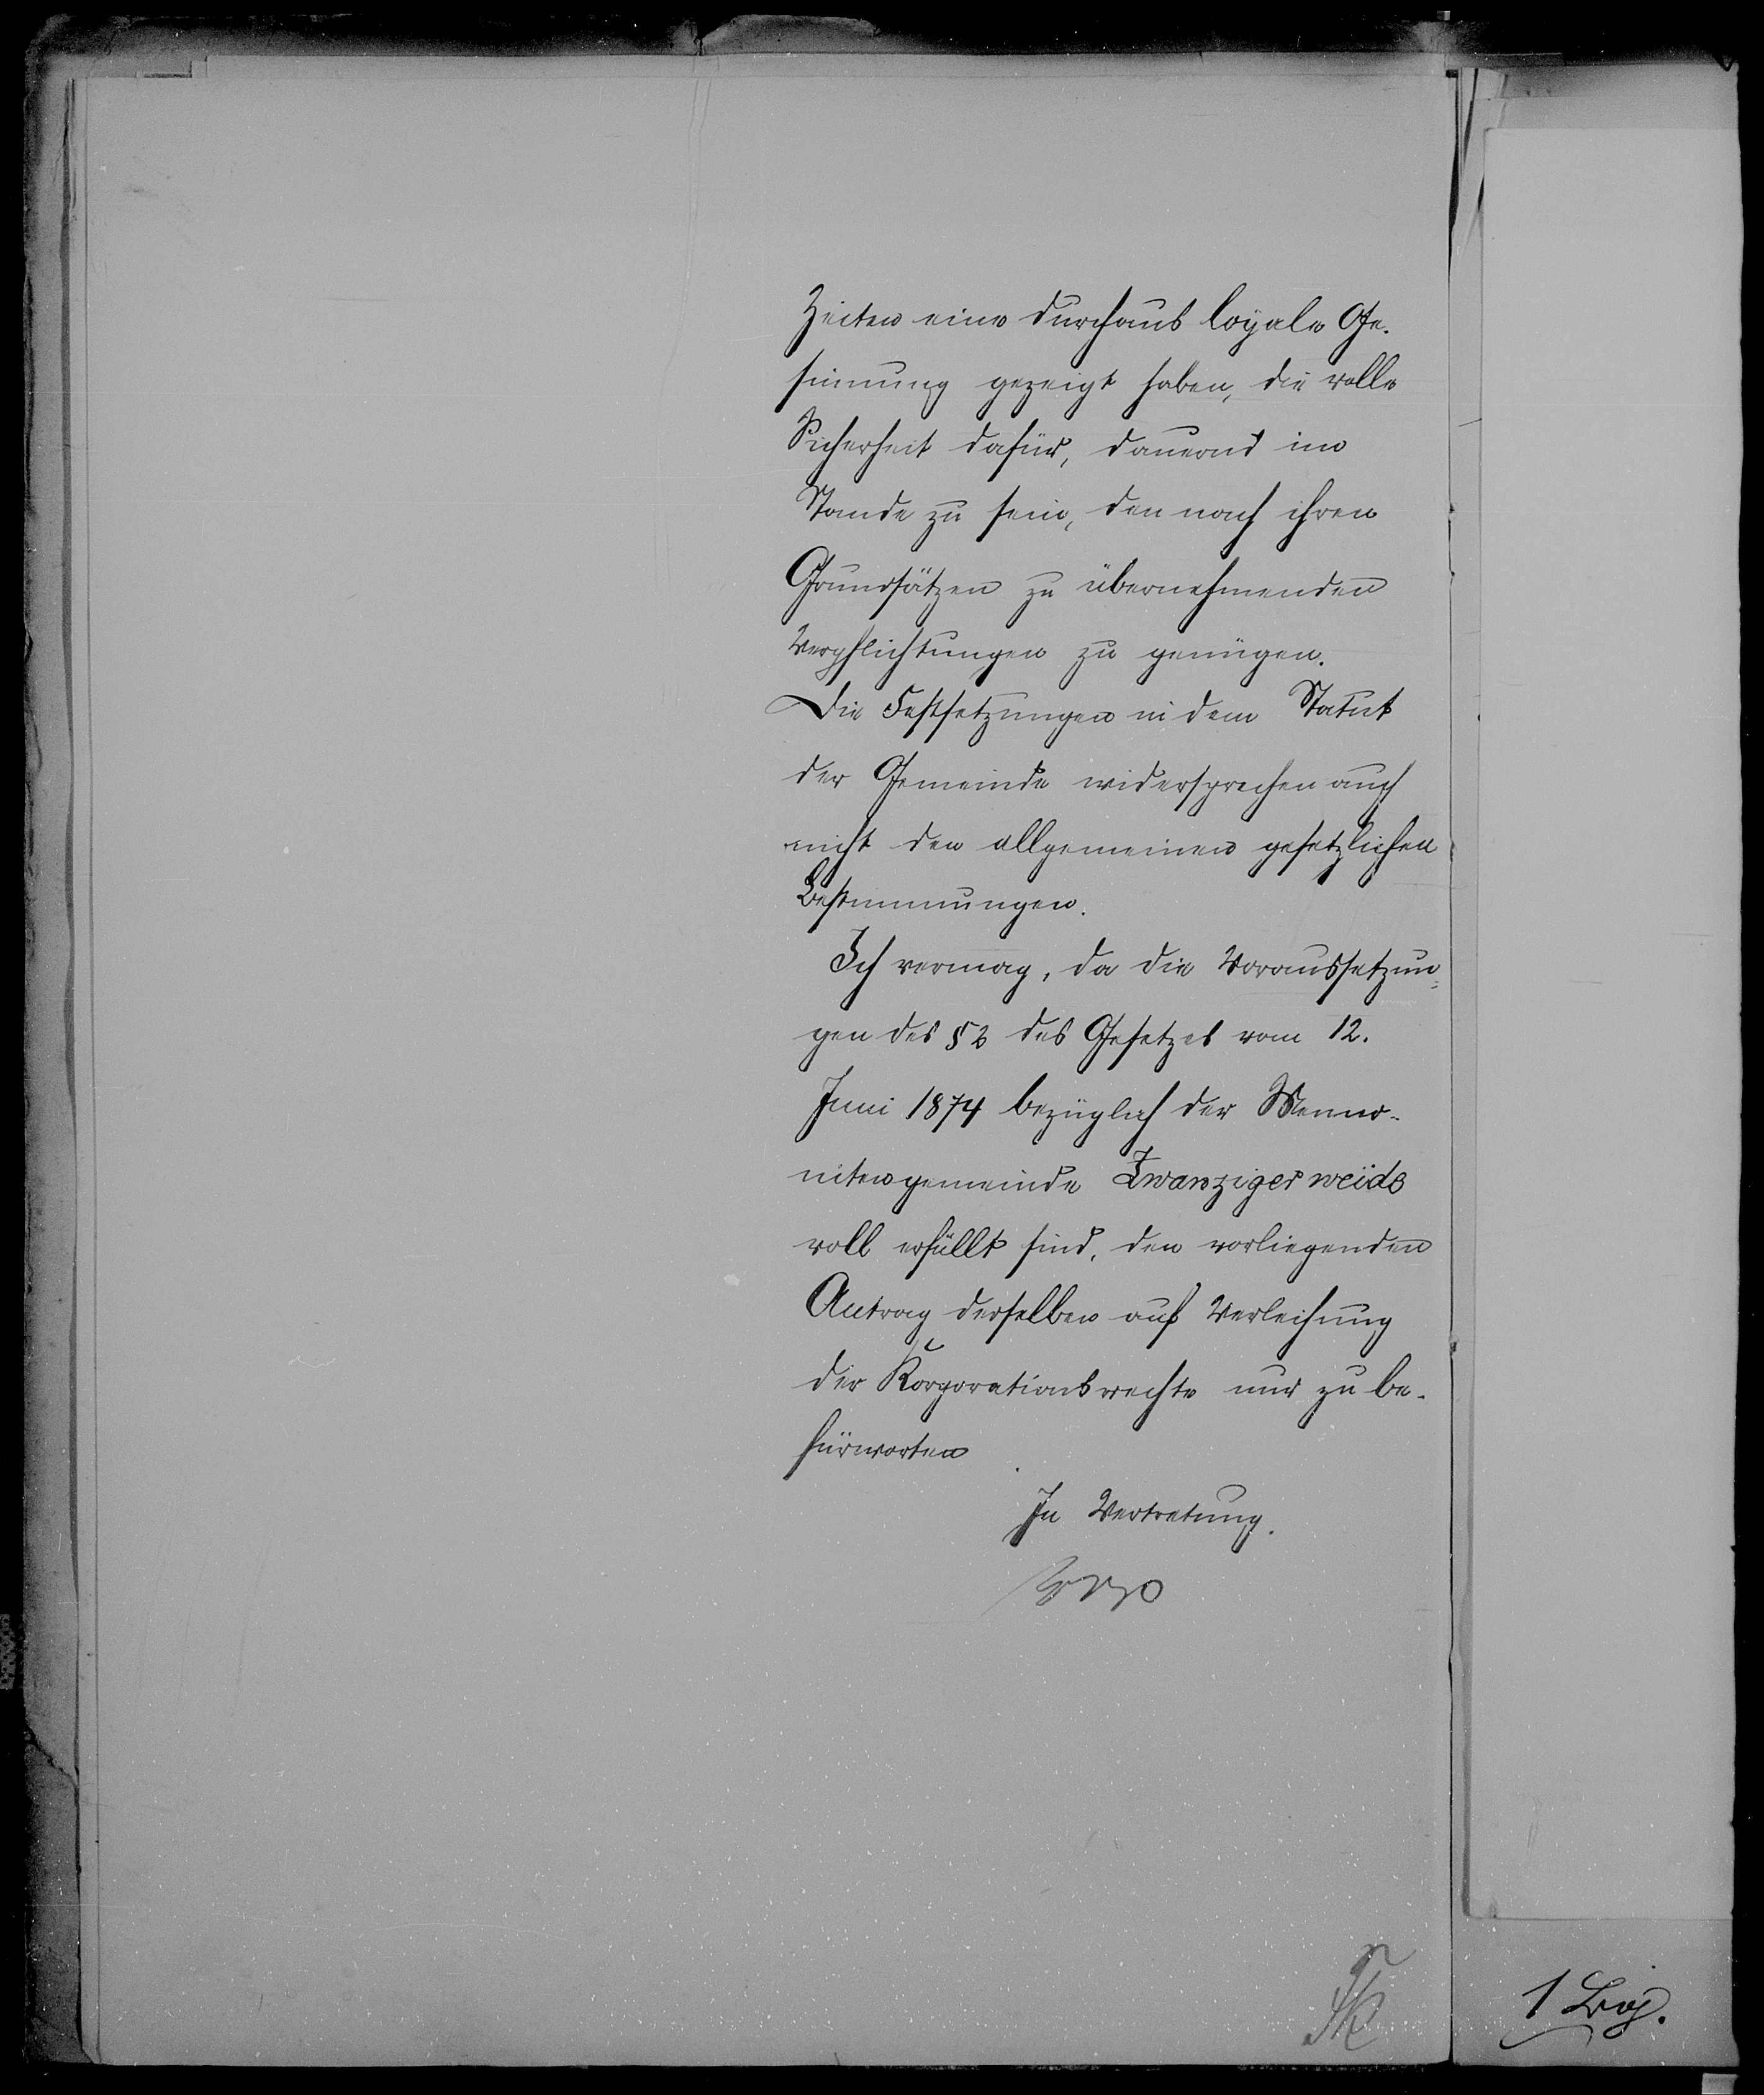 Zeiten eine durchaus loyale Ge-
sinnung gezeigt haben, die volle
Sicherheit dafür, dauernd im
Stande zu sein, den nach ihren
Grundsätzen zu übernehmenden
Verpflichtungen zu genügen.
Die Festsetzungen in dem Statut
der Gemeinde widersprechen auch
nicht den allgemeinen gesetzlichen
Bestimmungen.
Ich vermag, da die Voraussetzun-
gen des § 2 des Gesetzes vom 12.
Juni 1874 bezüglich der Menno-
nitengemeinde Zwanzigerweide
voll erfüllt sind, den vorliegenden
Antrag derselben auf Verleihung
der Korporationsrechte nur zu be-
fürworten
In Vertretung.